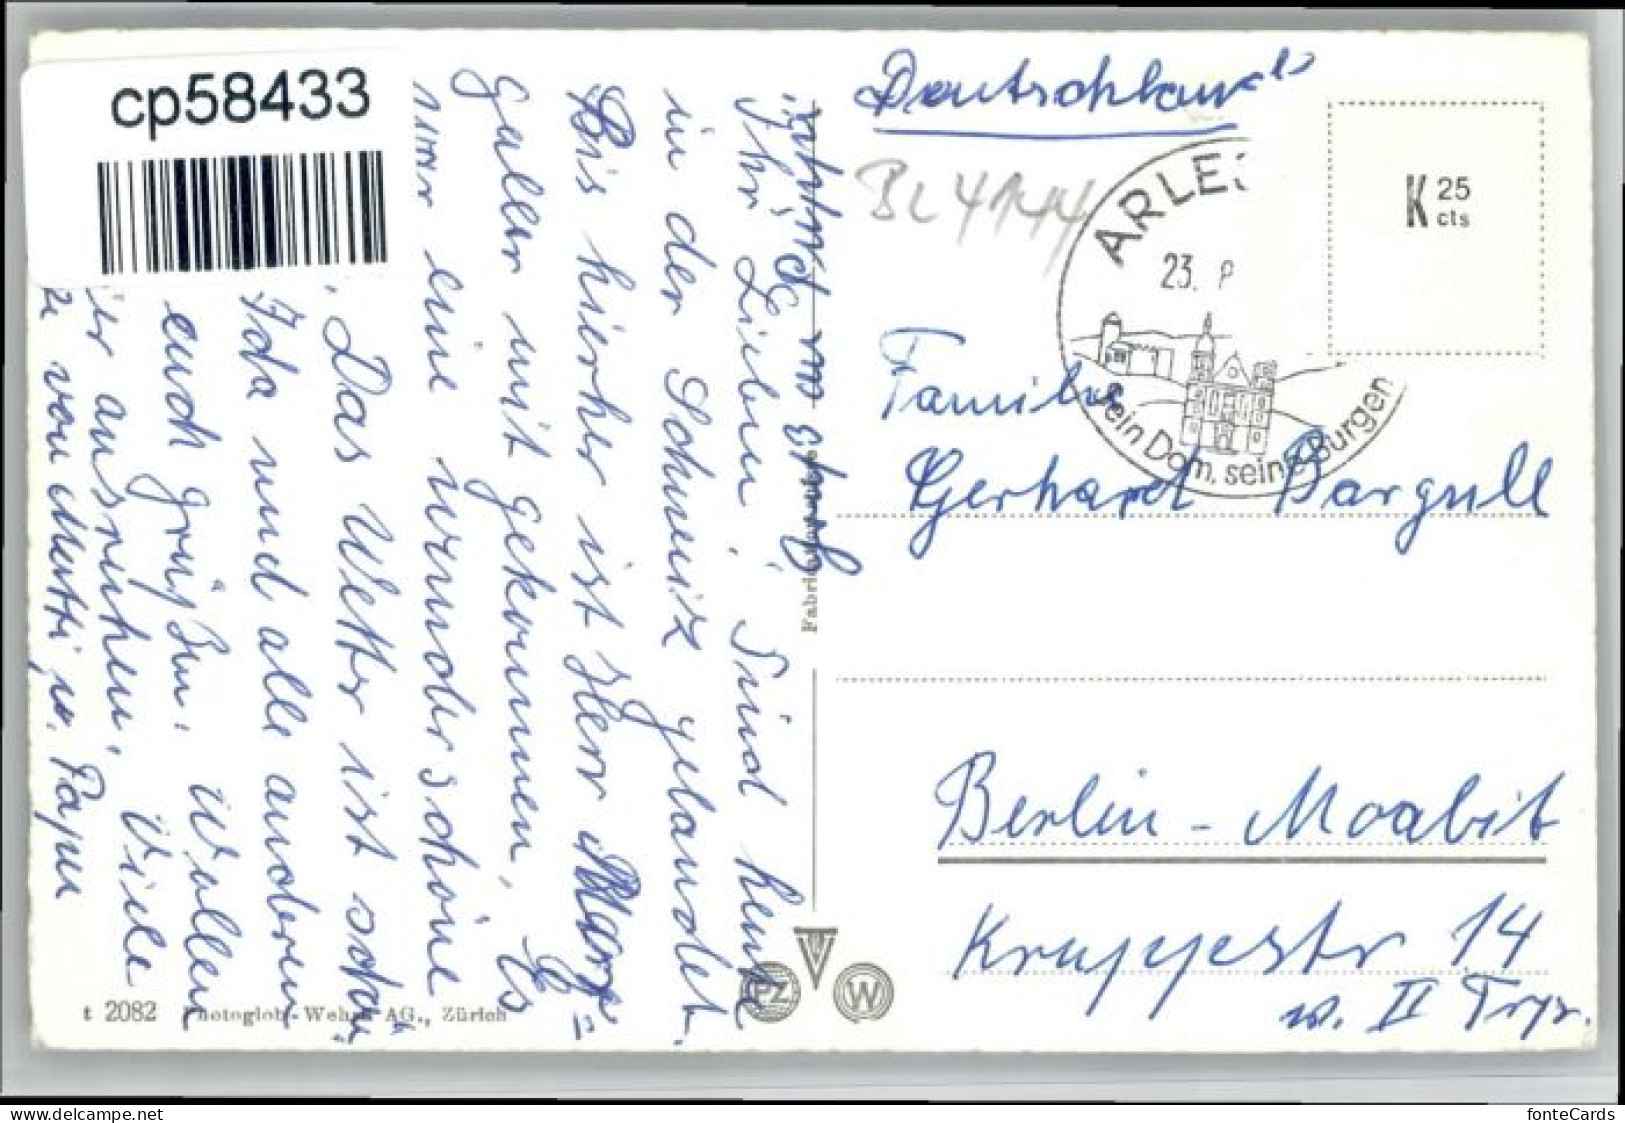 cp58433
Ihr Lieben! Sind heute
in der Schweiz gelandet.
Bis hierher ist Herr
Galler mit gekommen. Es
war eine wunderschöne
Das Wetter ist schön
Ida und alle anderen
euch grüßen. Wollen
ausruhen. Viele
von Mutti u. Papa
t 2082 Photoglob-Wehrli AG., Zürich
PZ
W
Deutschland
BL 4144
ARLE
23.
sein Dom, seine Burgen
K 25
cts
Familie
Gerhard Bargull
Berlin - Moabit
Kruppestr 14
II Trp.